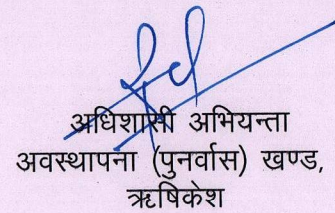 अधिशासी अभियन्ता
अवस्थापना (पुनर्वास) खण्ड,
ऋषिकेश